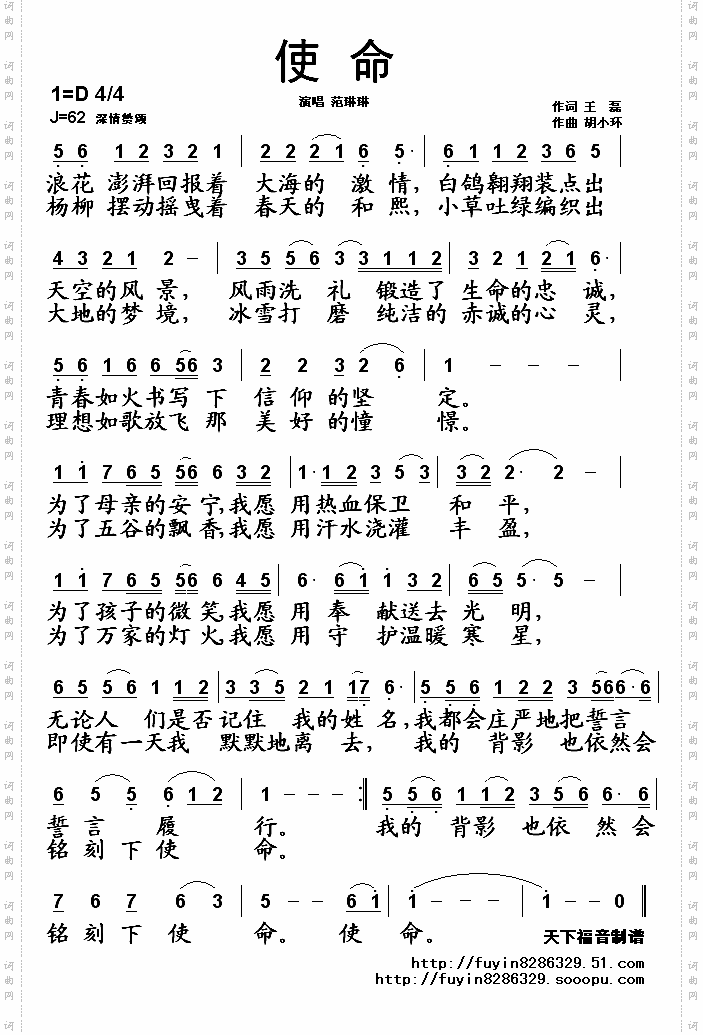 使命
1=D 4/4
演唱 范琳琳
作词 王 磊
J=62 深情赞颂
作曲 胡小环
5 6 1 2 3 2 1 | 2 2 2 1 6 5· | 6 1 1 2 3 6 5 |
浪花 澎湃回报着 大海的 激 情，白鸽翱翔装点出
杨柳 摆动摇曳着 春天的 和 熙，小草吐绿编织出
4 3 2 1 2 – | 3 5 5 6 3 3 1 1 2 | 3 2 1 2 1 6· |
天空的风 景， 风雨洗 礼 锻造了 生命的忠 诚，
大地的梦 境， 冰雪打 磨 纯洁的 赤诚的心 灵，
5 6 1 6 6 5 6 3 | 2 2 3 2 6 | 1 – – |
青春如火书写 下 信 仰 的坚 定。
理想如歌放飞 那 美 好 的憧 憬。
1 1 7 6 5 5 6 6 3 2 | 1· 1 2 3 5 3 | 3 2 2· 2 – |
为了母亲的安宁，我愿 用热血保卫 和 平，
为了五谷的飘香，我愿 用汗水浇灌 丰 盈，
1 1 7 6 5 5 6 6 4 5 | 6· 6 1 1 3 2 | 6 5 5· 5 – |
为了孩子的微笑，我愿 用 奉 献送去 光 明，
为了万家的灯火，我愿 用 守 护温暖 寒 星，
6 5 5 6 1 1 2 | 3 3 5 2 1 1 7 6· | 5 5 6 1 2 2 3 5 6 6· 6 |
无论人 们是否 记住 我的姓 名，我都会庄严地把誓言
即使有一天我 默默地离 去， 我的 背影 也依然会
6 5 5 6 1 2 | 1 – – :‖ 5 5 6 1 1 2 3 5 6 6· 6 |
誓言 履 行。 我的 背影 也依 然会
铭刻下使 命。
7 6 7 6 3 | 5 – – 6 1 | 1 – – – | 1 – – 0 ‖
铭刻下使 命。 使 命。
天下福音制谱
http://fuyin8286329.51.com
http://fuyin8286329.sooopu.com
词曲网